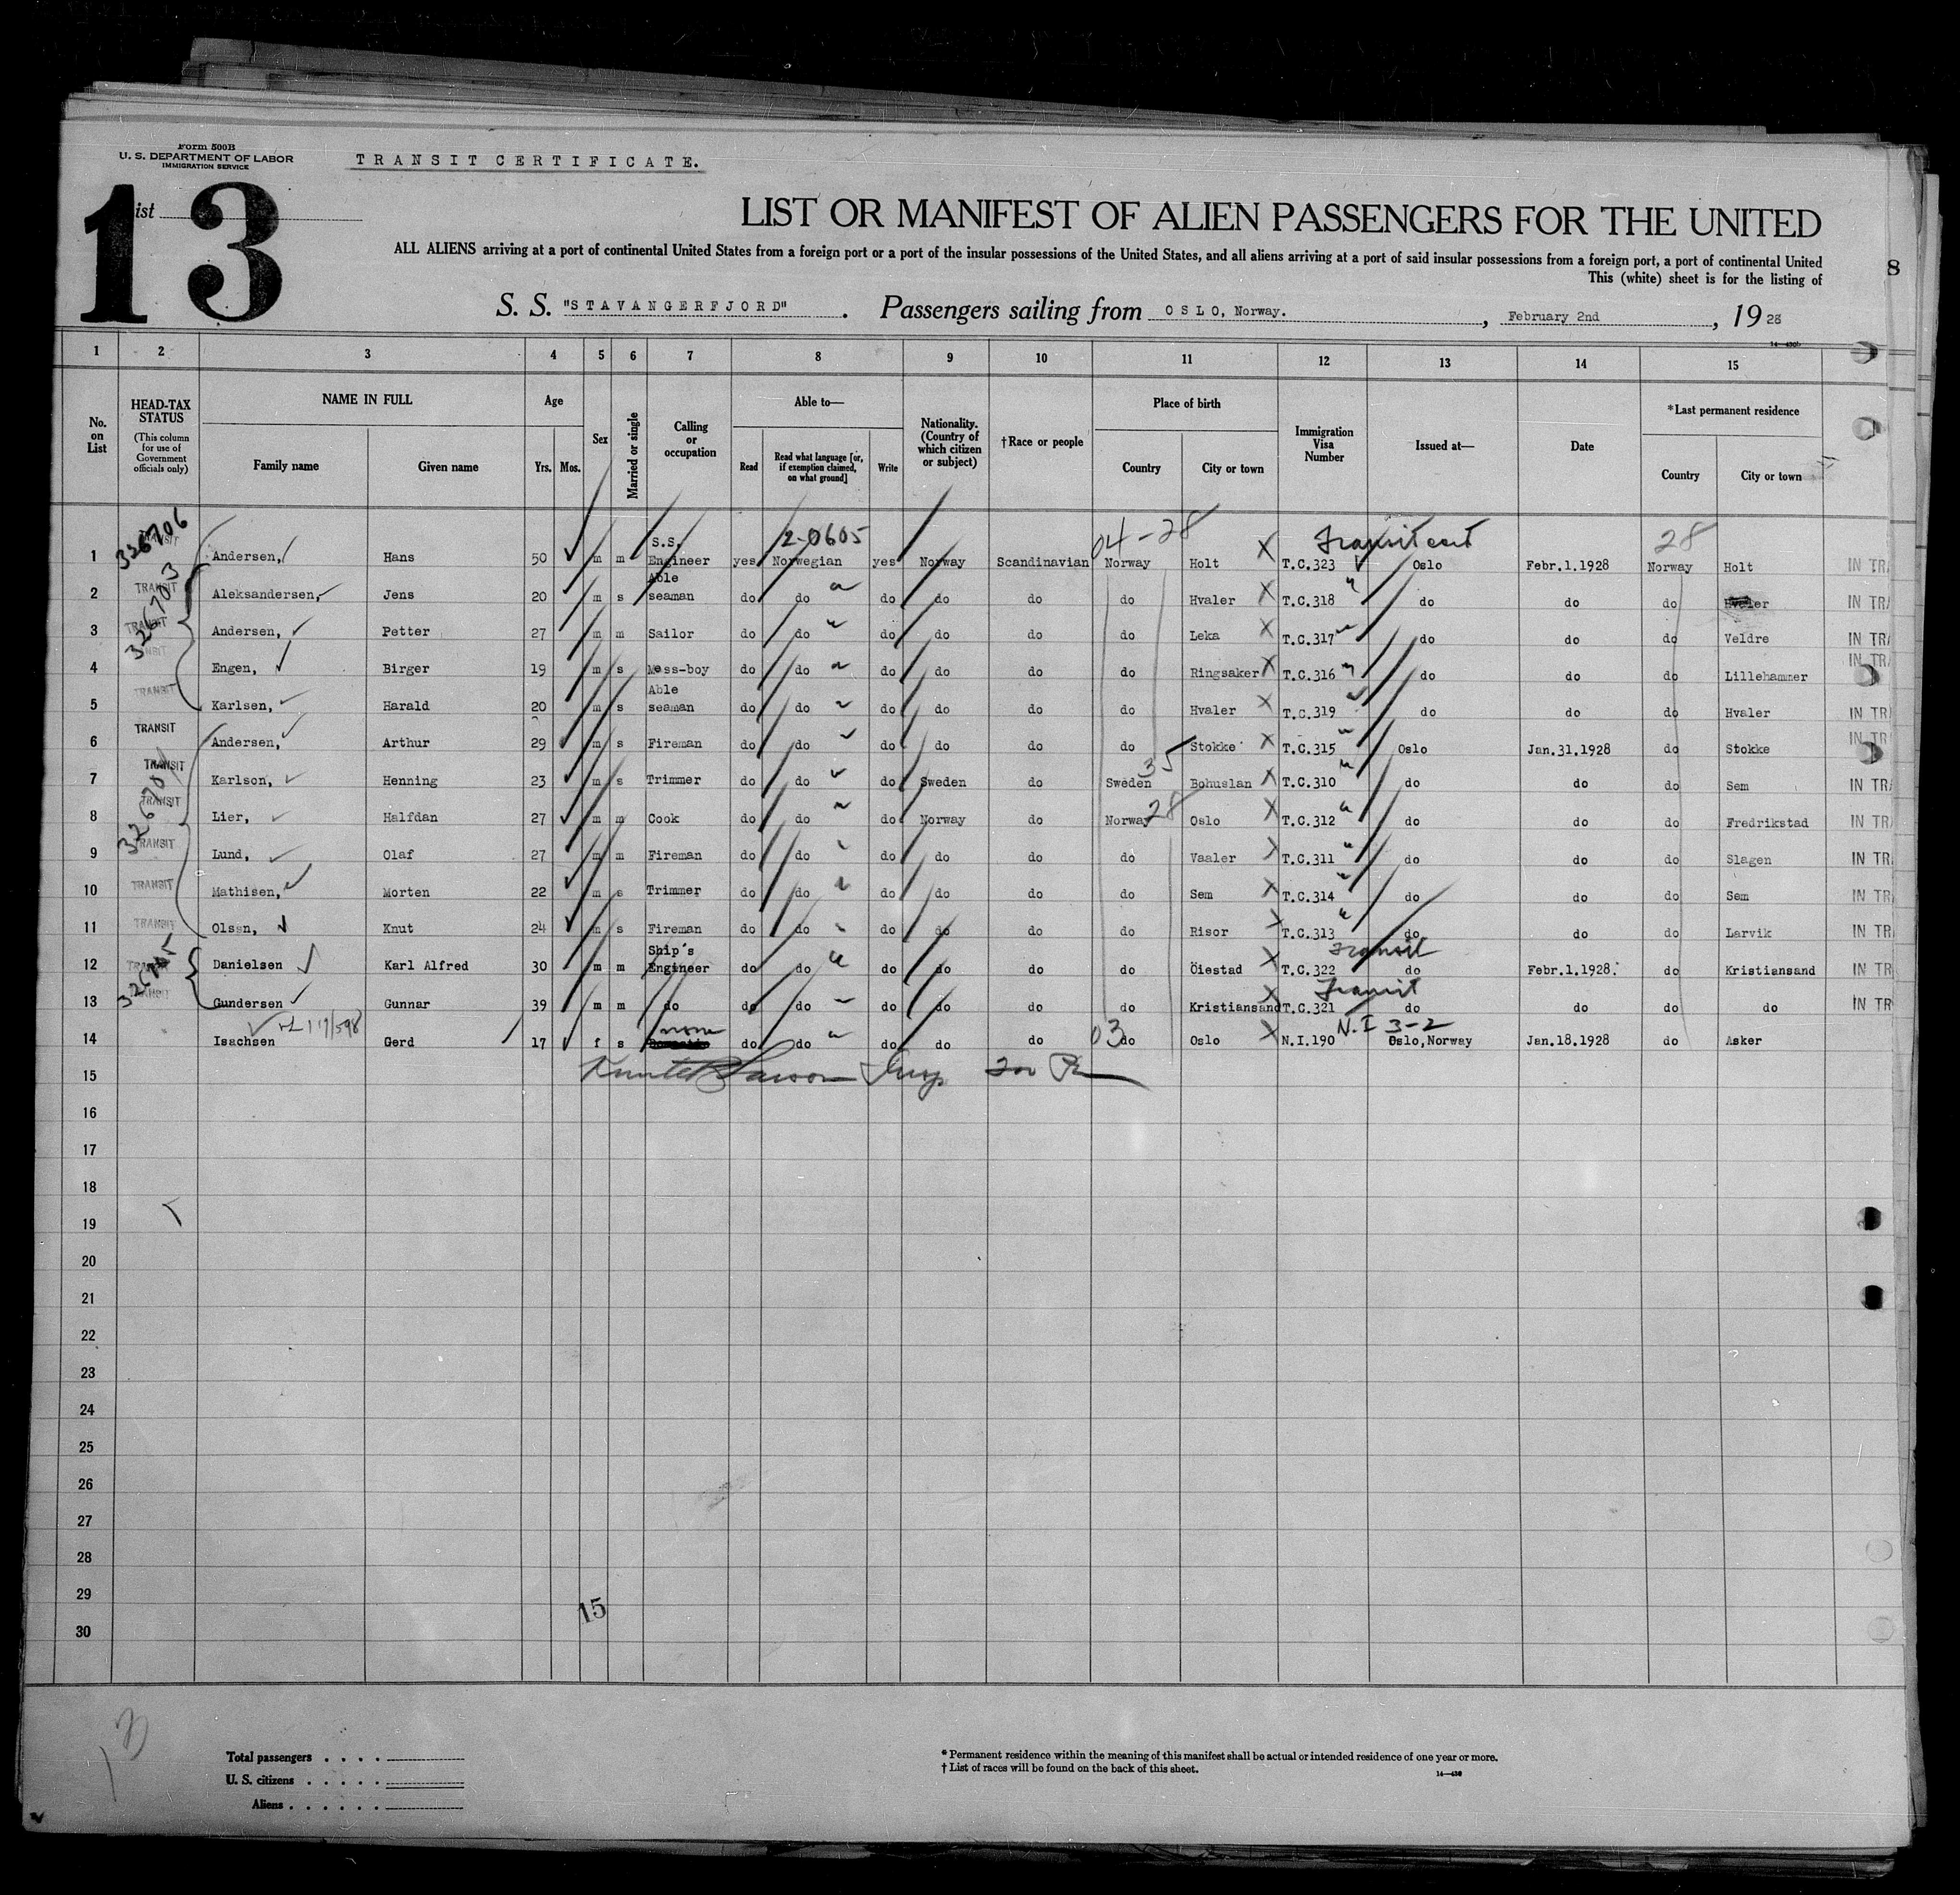 Form 500B
U. S. DEPARTMENT OF LABOR
IMMIGRATION SERVICE
TRANSIT CERTIFICATE.
13
ist
LIST OR MANIFEST OF ALIEN PASSENGERS FOR THE UNITED
ALL ALIENS arriving at a port of continental United States from a foreign port or a port of the insular possessions of the United States, and all aliens arriving at a port of said insular possessions from a foreign port, a port of continental United
This (white) sheet is for the listing of
8
S. S. "STAVANGERFJORD". Passengers sailing from OSLO, Norway., February 2nd, 1928
14—430b
1 2 3 4 5 6 7 8 9 10 11 12 13 14 15
No. on List
HEAD-TAX STATUS (This column for use of Government officials only)
NAME IN FULL
Family name Given name
Age
Yrs. Mos.
Sex
Married or single
Calling or occupation
Able to—
Read Read what language [or, if exemption claimed, on what ground] Write
Nationality. (Country of which citizen or subject)
†Race or people
Place of birth
Country City or town
Immigration Visa Number
Issued at—
Date
*Last permanent residence
Country City or town
326706 2-0605 04-28 28
1 TRANSIT Andersen, Hans 50 m m S.S. Engineer yes Norwegian yes Norway Scandinavian Norway Holt T.C.323 Oslo Febr.1.1928 Norway Holt IN TRA
326703
2 TRANSIT Aleksandersen, Jens 20 m s Able seaman do do do do do do Hvaler T.C.318 do do do IN TRA
3 TRANSIT Andersen, Petter 27 m m Sailor do do do do do do Leka T.C.317 do do do Veldre IN TRA
4 Engen, Birger 19 m s Mess-boy do do do do do do Ringsaker T.C.316 do do do Lillehammer IN TRA
5 TRANSIT Karlsen, Harald 20 m s Able seaman do do do do do do Hvaler T.C.319 do do do Hvaler IN TR
6 TRANSIT Andersen, Arthur 29 m s Fireman do do do do do do Stokke T.C.315 Oslo Jan.31.1928 do Stokke IN TR
35
7 TRANSIT Karlson, Henning 23 m s Trimmer do do do Sweden do Sweden Bohuslan T.C.310 do do do Sem IN TRA
28
8 TRANSIT Lier, Halfdan 27 m m Cook do do do Norway do Norway Oslo T.C.312 do do do Fredrikstad IN TRA
9 TRANSIT Lund, Olaf 27 m m Fireman do do do do do do Vaaler T.C.311 do do do Slagen IN TR
10 TRANSIT Mathisen, Morten 22 m s Trimmer do do do do do do Sem T.C.314 do do do Sem IN TR
11 TRANSIT Olsen, Knut 24 m s Fireman do do do do do do Risor T.C.313 do do do Larvik IN TR
Transit
12 TRANSIT Danielsen Karl Alfred 30 m m Ship's Engineer do do do do do do Öiestad T.C.322 do Febr.1.1928. do Kristiansand IN TR
Transit
13 TRANSIT Gundersen Gunnar 39 m m do do do do do do do Kristiansand T.C.321 do do do do IN TR
none 03 N.I 3-2
14 Isachsen Gerd 17 f s do do do do do do Oslo N.I.190 Oslo,Norway Jan.18.1928 do Asker
15
16
17
18
19
20
21
22
23
24
25
26
27
28
29
15
30
Total passengers
U. S. citizens
Aliens
* Permanent residence within the meaning of this manifest shall be actual or intended residence of one year or more.
† List of races will be found on the back of this sheet.